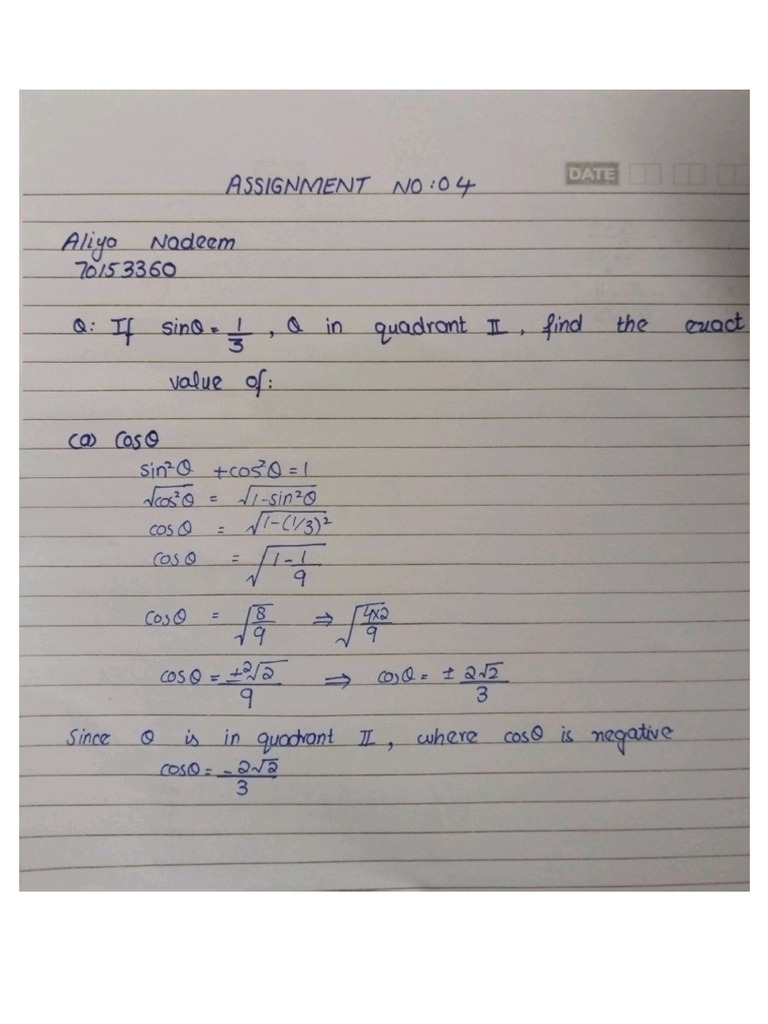 DATE
ASSIGNMENT NO:04
Aliya Nadeem
70153360
Q: If sinθ = 1/3, θ in quadrant II, find the exact
value of:
(a) Cosθ
sin²θ + cos²θ = 1
√cos²θ = √1-sin²θ
cosθ = √1-(1/3)²
cosθ = √1-1/9
cosθ = √8/9 ⇒ √4x2/9
cosθ = ±2√2/9 ⇒ cosθ = ± 2√2/3
Since θ is in quadrant II, where cosθ is negative
cosθ = -2√2/3